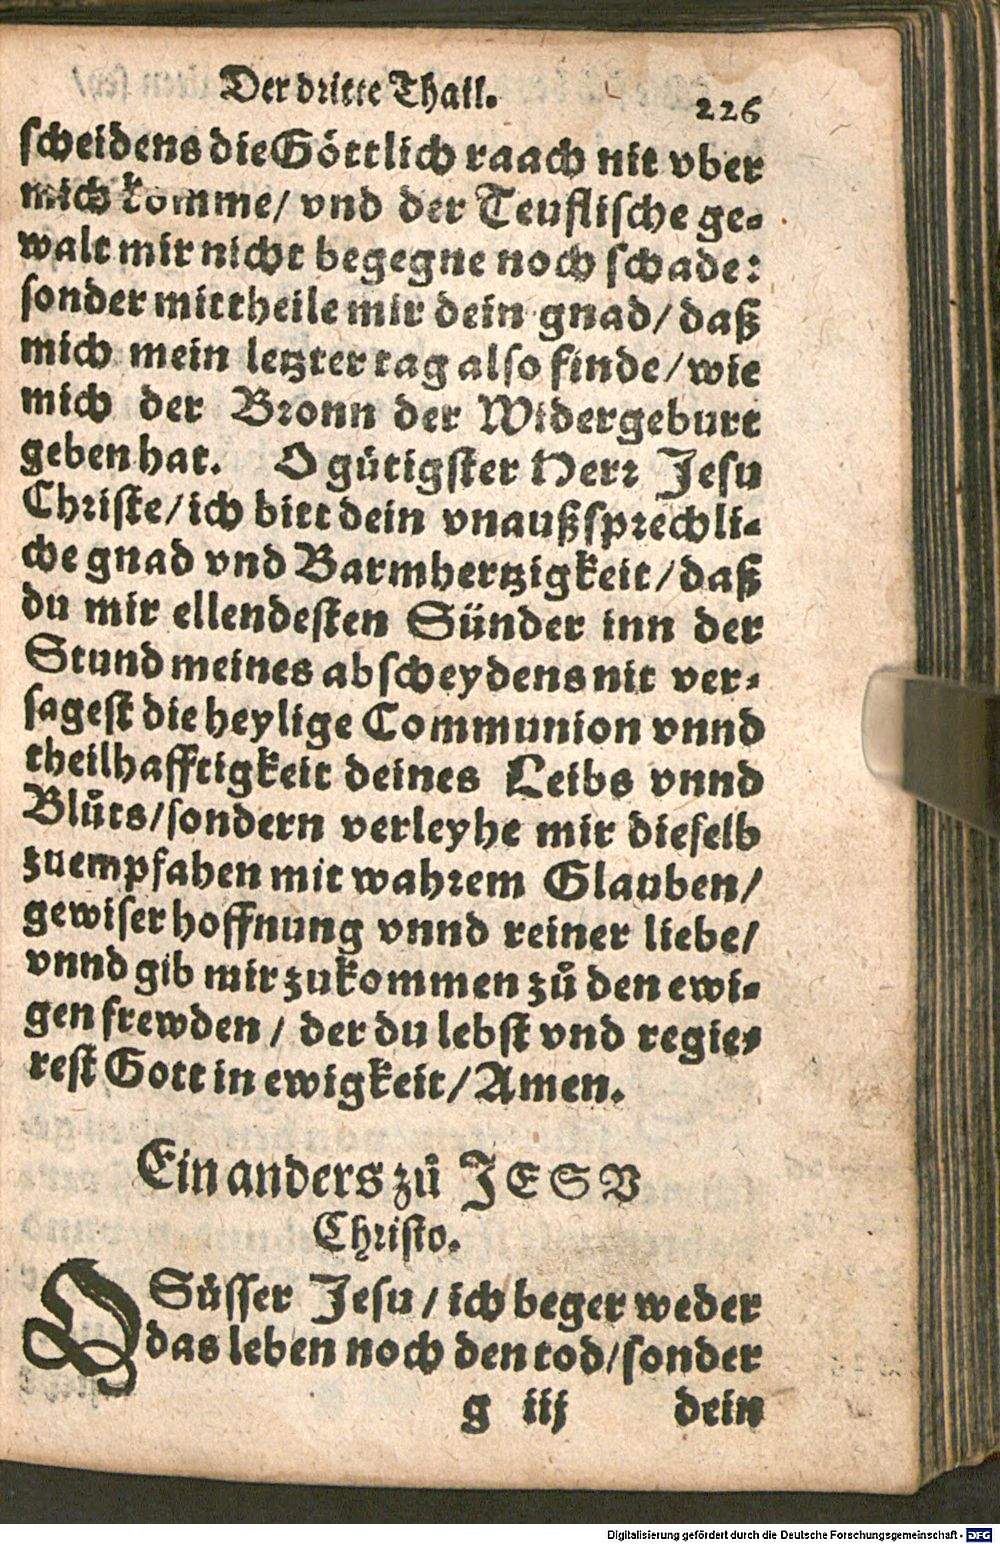 Der dritte Thail. 226
scheidens die Göttlich raach nit vber
mich komme/ vnd der Teuflische ge-
walt mir nicht begegne noch schade:
sonder mittheile mir dein gnad/ daß
mich mein letzter tag also finde/ wie
mich der Bronn der Widergeburt
geben hat. O gütigster Herr Jesu
Christe/ ich bitt dein vnaußsprechli-
che gnad vnd Barmhertzigkeit/ daß
du mir ellendesten Sünder inn der
Stund meines abscheydens nit ver-
sagest die heylige Communion vnnd
theilhafftigkeit deines Leibs vnnd
Blůts/ sondern verleyhe mir dieselb
zuempfahen mit wahrem Glauben/
gewiser hoffnung vnnd reiner liebe/
vnnd gib mir zukommen zů den ewi-
gen frewden/ der du lebst vnd regie-
rest Gott in ewigkeit/ Amen.
Ein anders zů JESV
Christo.
O Süsser Jesu/ ich beger weder
das leben noch den tod/ sonder
g iij dein
Digitalisierung gefördert durch die Deutsche Forschungsgemeinschaft - DFG